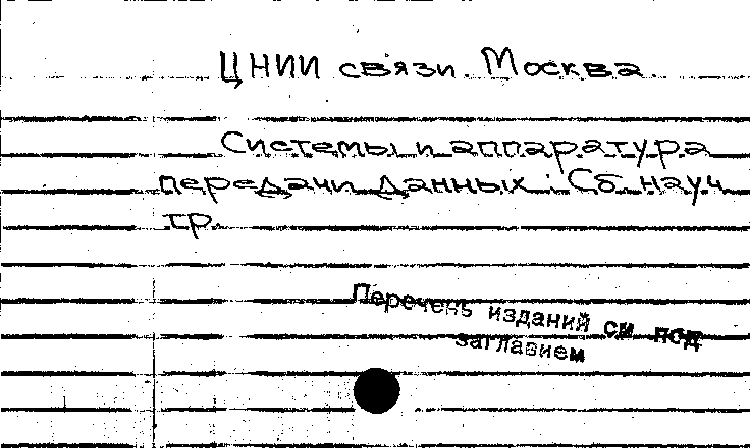 ЦНИИ связи. Москва.
Системы и аппаратура
передачи данных : Сб. науч
тр.
Перечень изданий см под
заглавием